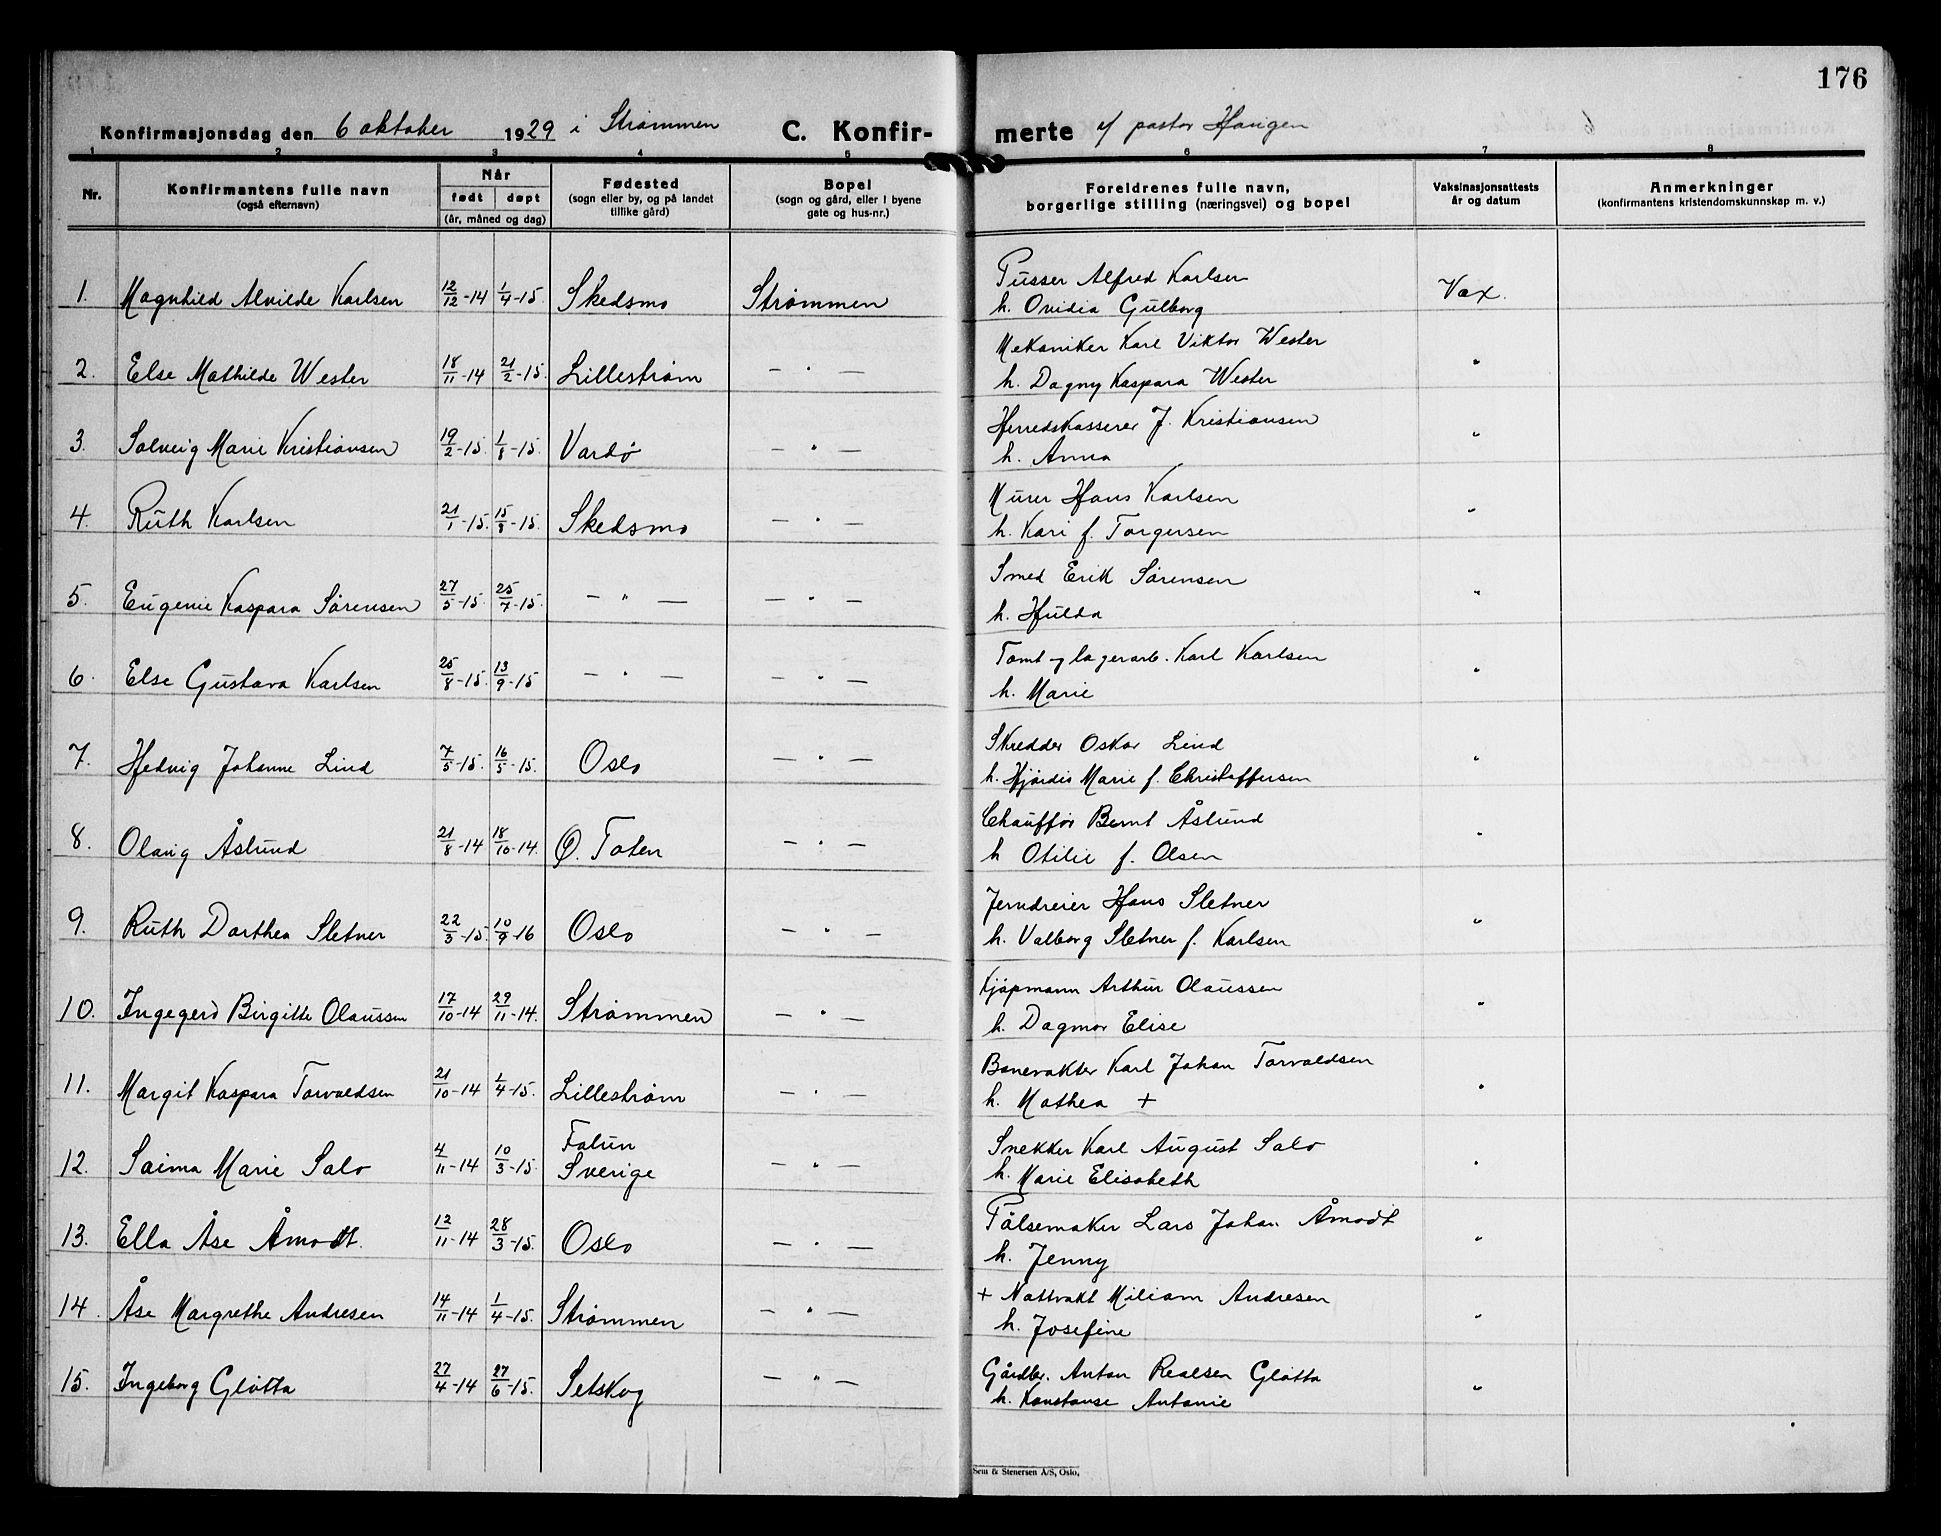 176
Konfirmasjonsdag den 6 oktober 1929 i Strømmen C. Konfir- merte v/ pastor Haugen
1 2 3 4 5 6 7 8
Nr. Konfirmantens fulle navn (også efternavn) Når født døpt (år, måned og dag) Fødested (sogn eller by, og på landet tillike gård) Bopel (sogn og gård, eller i byene gate og hus-nr.) Foreldrenes fulle navn, borgerlige stilling (næringsvei) og bopel Vaksinasjonsattests år og datum Anmerkninger (konfirmantens kristendomskunnskap m. v.)
1. Magnhild Alvilde Karlsen 12/12-14 1/4-15. Skedsmo Strømmen Pusser Alfred Karlsen Vax.
h. Ovidia Gulborg
2. Else Mathilde Wester 18/11-14 21/2-15. Lillestrøm — " — Mekaniker Karl Viktor Wester "
h. Dagny Kaspara Wester
3. Solveig Marie Kristiansen 19/2-15. 1/8-15. Vardø — " — Herredskasserer J. Kristiansen "
h. Anna
4. Ruth Karlsen 21/1-15. 15/8-15. Skedsmo — " — Murer Hans Karlsen "
h. Kari f. Torgersen
5. Eugenie Kaspara Sørensen 27/5-15. 25/7-15. — " — — " — Smed Erik Sørensen "
h. Hulda
6. Else Gustava Karlsen 25/8-15. 13/9-15 — " — — " — Tomt og lagerarb. Karl Karlsen "
h. Marie
7. Hedvig Johanne Lind 7/5-15. 16/5-15. Oslo — " — Skredder Oskar Lind "
h. Hjördis Marie f. Christoffersen
8. Olaug Åslund 21/8-14 18/10-14. Ø. Toten — " — Chauffør Bernt Åslund "
h Otilie f. Olsen
9. Ruth Dorthea Sletner 22/3-15. 10/9-16 Oslo — " — Jerndreier Hans Sletner "
h. Valborg Sletner f. Karlsen
10. Ingegerd Birgitte Olaussen 17/10-14 29/11-14. Strømmen — " — Kjøpmann Arthur Olaussen "
h. Dagmar Elise
11. Margit Kaspara Torvaldsen 21/10-14 1/4-15. Lillestrøm — " — Banevakter Karl Johan Torvaldsen "
h. Mathea +
12. Saima Marie Salo 4/11-14 10/3-15. Falun Sverige — " — Snekker Karl August Salo "
h. Marie Elisabeth
13. Ella Åse Åmodt. 12/11-14 28/3-15. Oslo — " — Pølsemaker Lars Johan Åmodt "
h. Jenny
14. Åse Margrethe Andresen 14/11-14 1/4-15. Strømmen — " — + Nattvakt Miliam Andresen "
h. Josefine
15. Ingeborg Gløtta 27/4-14 27/6-15. Setskog — " — Gårdbr. Anton Realsen Gløtta "
h. Konstanse Antonie
Sem & Stenersen A/S, Oslo.